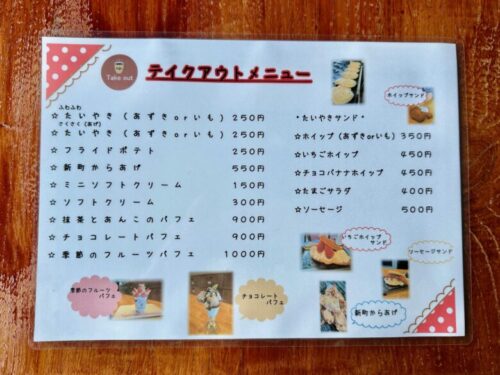 Take out
テイクアウトメニュー
ふわふわ
☆たいやき（あずきorいも）250円
さくさく（あげ）
☆たいやき（あずきorいも）250円
☆フライドポテト 250円
☆新町からあげ 550円
☆ミニソフトクリーム 150円
☆ソフトクリーム 300円
☆抹茶とあんこのパフェ 900円
☆チョコレートパフェ 900円
☆季節のフルーツパフェ 1000円
ホイップサンド
*たいやきサンド*
☆ホイップ（あずきorいも）350円
☆いちごホイップ 450円
☆チョコバナナホイップ 450円
☆たまごサラダ 400円
☆ソーセージ 500円
いちごホイップ
サンド
ソーセージサンド
季節のフルーツ
パフェ
チョコレート
パフェ
新町からあげ